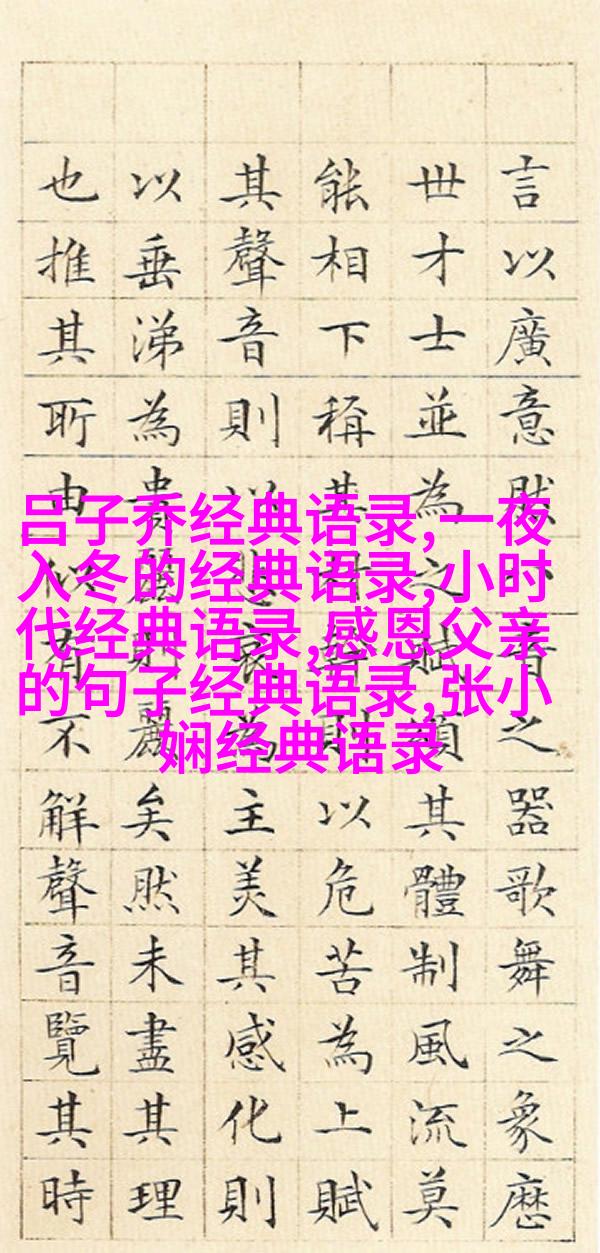 言以廣意然音之器歌舞之象歷
世才士並為之賦頌其體制風流莫
能相下稱其則以危苦為上賦
其聲音則以悲哀為主美其感化則
以垂涕為貴麗則麗矣然未盡其理
也推其所由似有不解聲音覽其時
吕子乔经典语录,一夜
入冬的经典语录,小时
代经典语录,感恩父亲
的句子经典语录,张小
娴经典语录